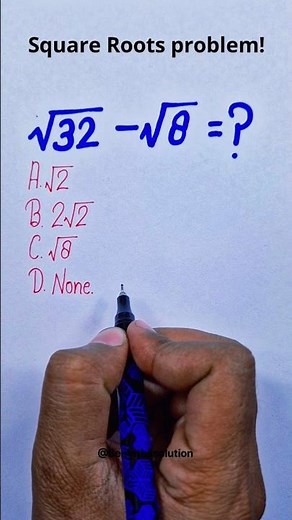 Square Roots problem!
√32 - √8 = ?
A. √2
B. 2√2
C. √8
D. None.